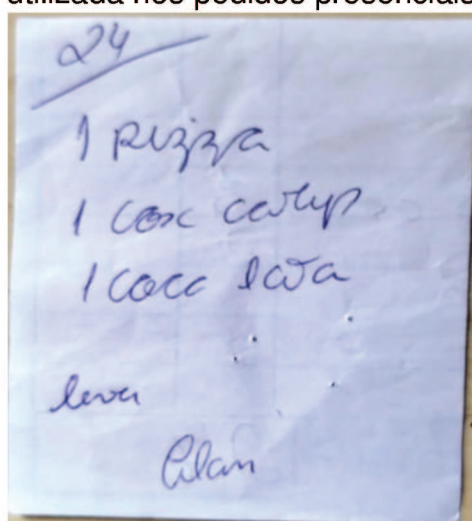 utilizada nos pedidos presenciais
24
1 pizza
1 cox catup
1 coca lata
leva